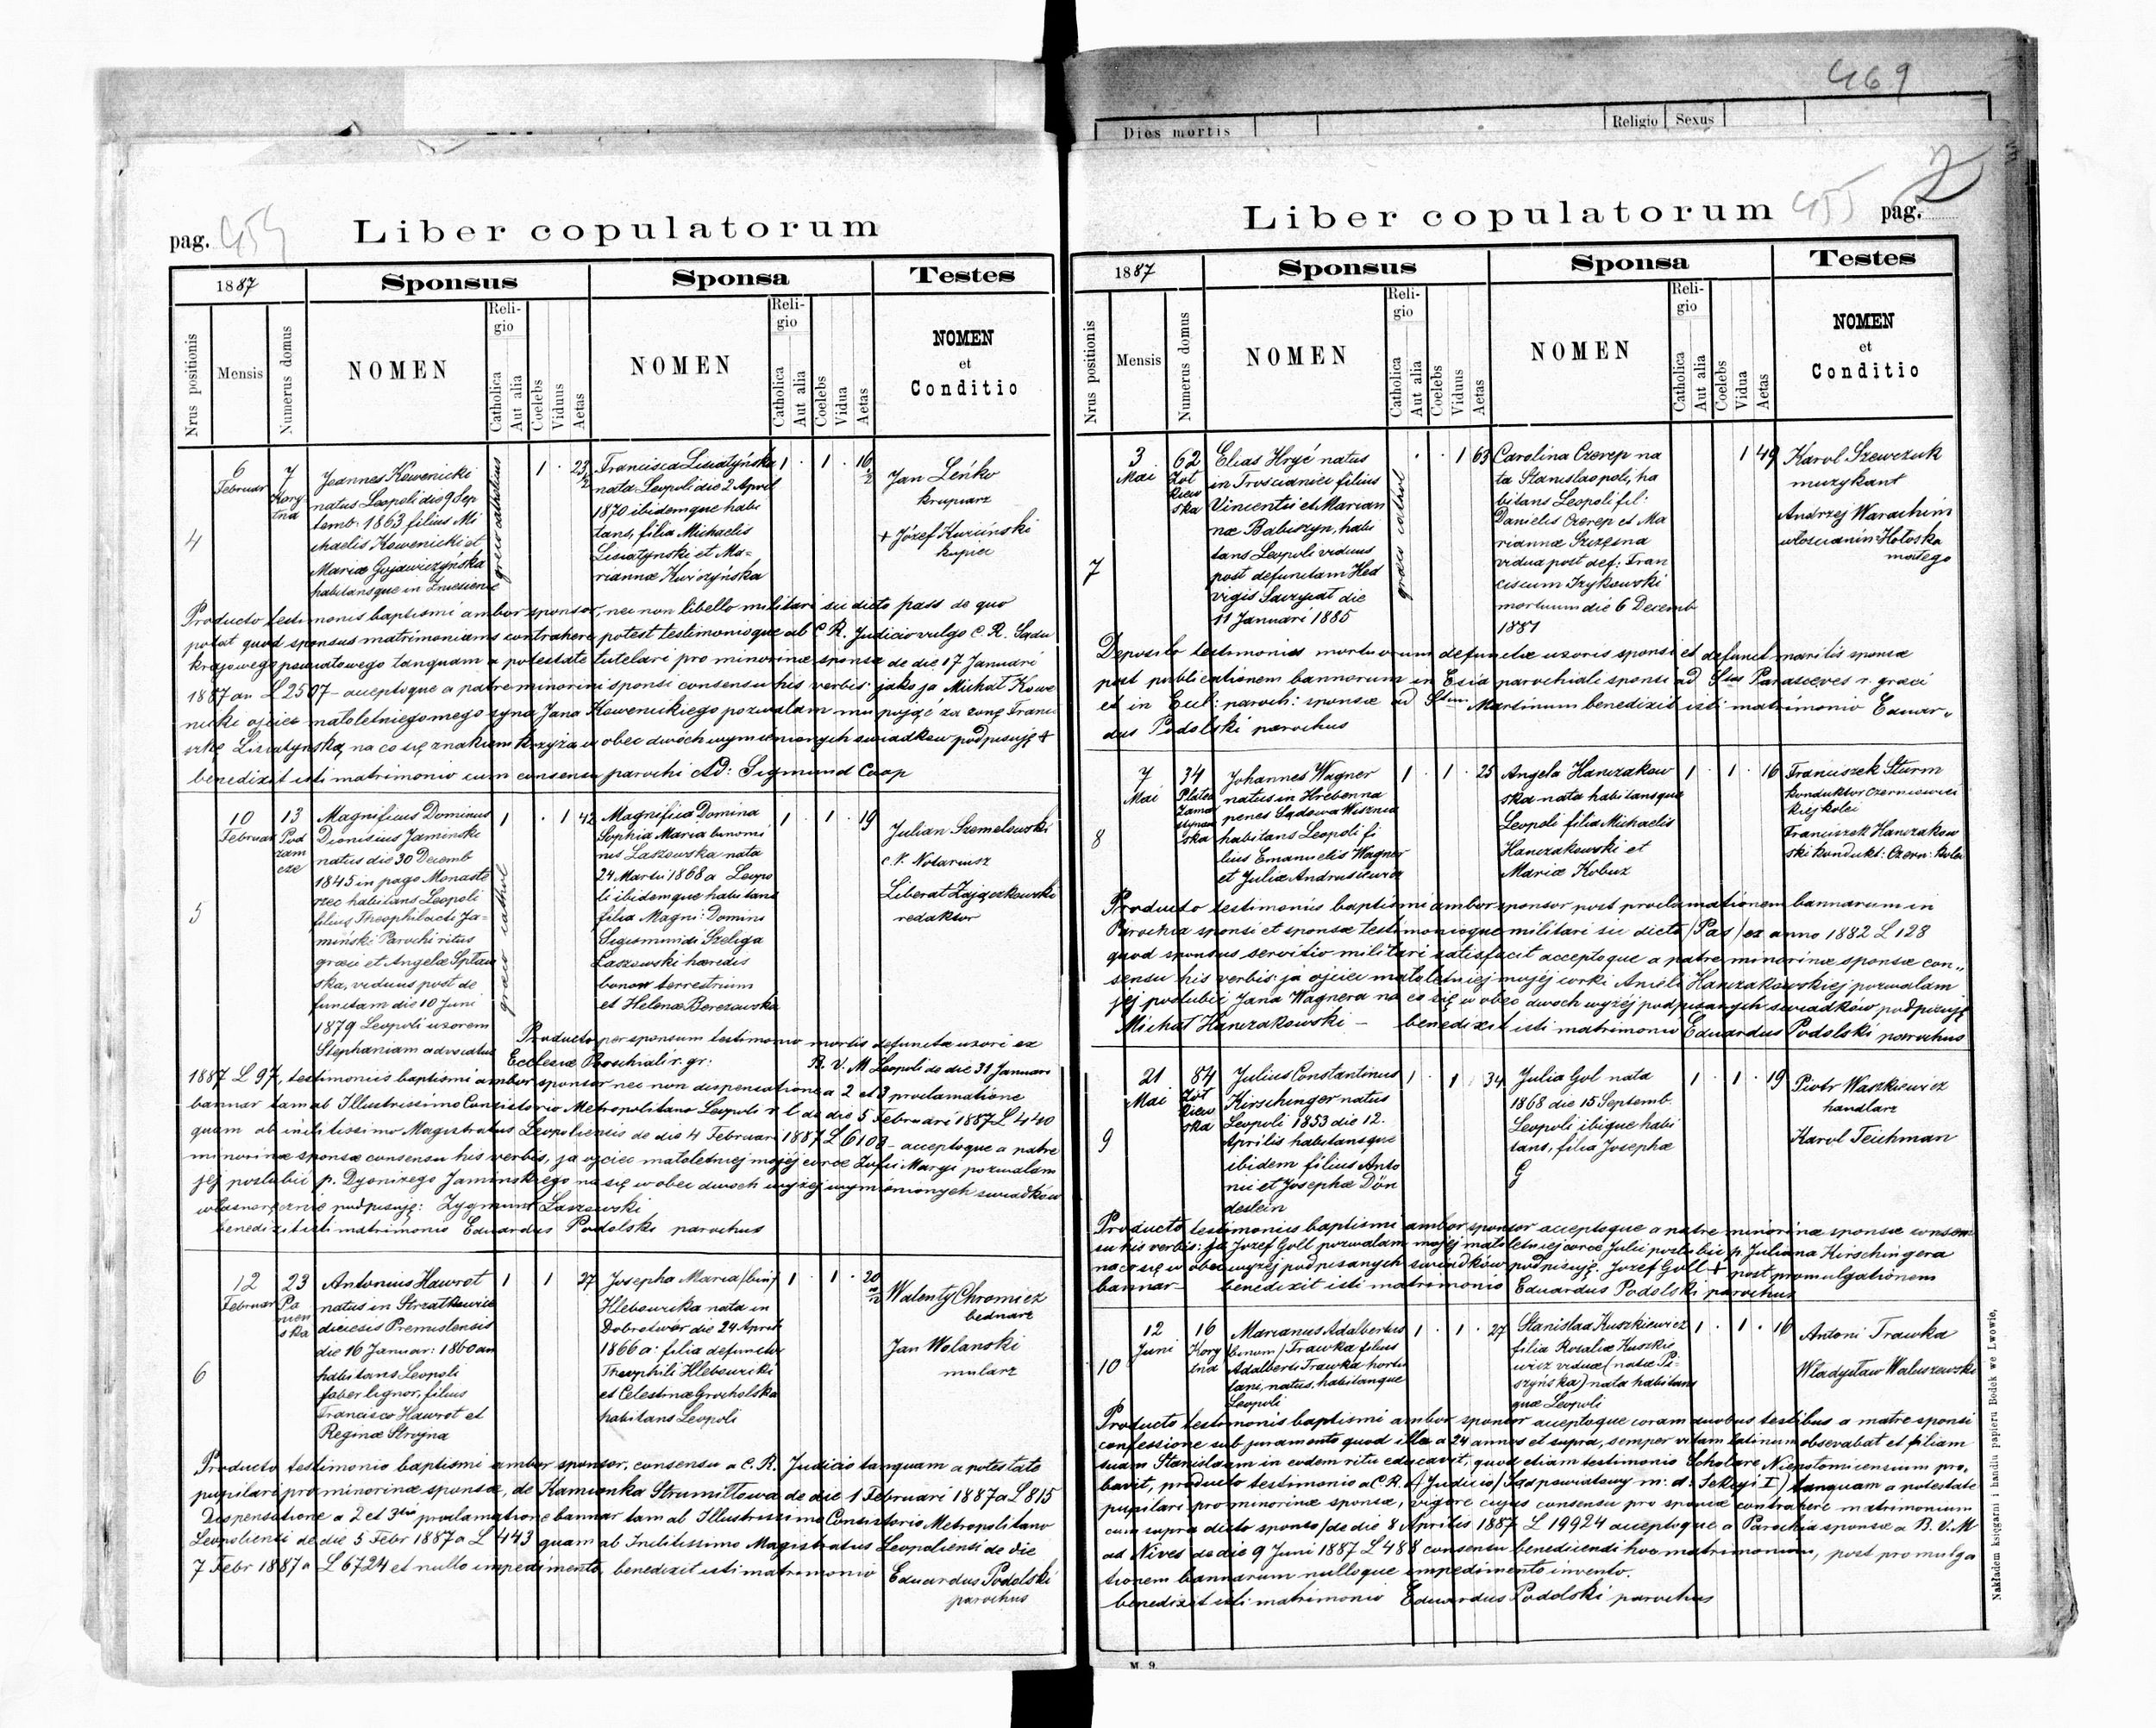 469
Dies mortis
Religio Sexus
pag. 454
Liber copulatorum
1887
Sponsus
Sponsa
Testes
Nrus positionis
Mensis
Numerus domus
NOMEN
Religio
Catholica
Aut alia
Coelebs
Viduus
Aetas
NOMEN
Religio
Catholica
Aut alia
Coelebs
Vidua
Aetas
NOMEN
et
Conditio
4
6
Februar
7
Joannes Kowenicki
natus Leopoli die 9 Sep
temb. 1863 filius Mi
chaelis Kowenicki et
Mariæ
habitansque in Zniesienie
græco catholicus
1 23
Francisca Lisiatyńska
nata Leopoli die 2 April
1870 ibidemque habi
tans, filia Michaelis
Lisiatynski et Ma-
riannæ
1 1 16
Jan Leńko
krupiarz
+ Józef
kupiec
Producto testimonis baptismi ambor sponsor, nec non libello militari sic dicto pass de quo
patat quod sponsus matrimoniams contrahere potest testimonioque ab C. R. Judicio vulgo C. R. Sądu
krajowego powiatowego tanquam a potestate tutelari pro minorinæ sponsæ de die 17 Januari
1887 an L 2507 - acceptoque a patre minorini sponsi consensu his verbis: jako ja Michał Kowe
nicki ojciec małoletniego mego syna Jana Kowenickiego pozwalam mu pojąć za żonę Franci
szkę Lisiatyńską, na co się znakiem krzyża w obec dwóch wymienionych swiadków podpisuję +
benedixit isti matrimonio cum consensu parochi Ad: Sigmund Coop
5
10
Februar
13
Pod
zam
cze
Magnificus Dominus
Dionisius Jaminski
natus die 30 Decemb
1845 in pago Monaste
rzec habitans Leopoli
filius Theophilacti Ja-
miński Parochi ritus
græci et Angelæ
ska, viduus post de
functam die 10 Juni
1879 Leopoli uxorem
Stephaniam advocatus
græco cathol
1 1 42
Magnifica Domina
Sophia Maria binomi
nis Laszowska nata
24 Martii 1868 a Leopo
li ibidemque habitans
filia Magni: Domini
Sigismundi Szeliga
Laszowski hæredis
bonor terrestrium
et Helenæ Berezowska
1 1 19
Julian Szemelowski
c. k. Notariusz
Liberat Zajączkowski
redaktor
Producto per sponsum testimonio mortis defunctæ uxori ex
Ecclesiæ Parchiali r. gr: B. V. M Leopoli de die 31 Januari
1887 L 97, testimoniis baptismi ambor sponsor nec non dispensatione a 2 et 3 proclamatione
bannar tam ab Illustrissimo Consistorio Metropolitano Leopoli r l de die 5 Februari 1887 L 440
quam ab inclitissimo Magistratus Leopoliensis de die 4 Februari 1887 L 6108 - acceptoque a patre
minorinæ sponsæ consensu his verbis, ja ojciec małoletniej mojéj córce Zofii Maryi pozwalam
jéj poslubić p. Dyonizego Jaminskiego na się w obec dwoch wyżej wymienionych swiadków
własnoręcznie podpisuję: Zygmunt Laszowski
benedixit isti matrimonio Eduardus Podolski parochus
6
12
Februar
23
Pa
nien
ska
Antonius Hawrot
natus in
diecesis Premislensis
die 16 Januar: 1860 an
habitans Leopoli
faber lignor, filius
Francisco Hawrot et
Reginæ Strojna
1 1 27
Josepha Maria (bin)
Hlebowicka nata in
Dobrotwór die 24 April
1866 a: filia defuncti
Theophili Hlebowicki
et Celestinæ Grocholska
habitans Leopoli
1 1 20
Walenty Chromiez
bednarz
Jan Wolanski
mularz
Producto testimonio baptismi ambor sponsor, consensu a C. R. Judicio tanquam a potestate
pupilari pro minorinæ sponsæ, de Kamionka Strumiłłowa de die 1 Februari 1887 a L 815
Dispensatione a 2 et 3tio proclamatione bannar tam ab Illustrissimo Consistorio Metropolitano
Leopoliensi de die 5 Febr 1887 a L 443 quam ab Inclitissimo Magistratus Leopoliensi de die
7 Febr 1887 a L 6724 et nullo impedimento, benedixit isti matrimonio Eduardus Podolski
parochus
Liber copulatorum
455 pag. 2
1887
Sponsus
Sponsa
Testes
Nrus positionis
Mensis
Numerus domus
NOMEN
Religio
Catholica
Aut alia
Coelebs
Viduus
Aetas
NOMEN
Religio
Catholica
Aut alia
Coelebs
Vidua
Aetas
NOMEN
et
Conditio
7
3
Mai
62
Żół
kiew
ska
Elias Hryć natus
in Troscianici filius
Vincentii et Marian
næ Babiszyn, habi
tans Leopoli viduus
post defunctam Hed
vigis die
11 Januari 1885
græco cathol
1 63
Carolina Czerep na
ta Stanislaopoli, ha
bitans Leopoli fil:
Danielis Czerep et Ma
riannæ Szczęsna
vidua post def: Fran
ciscum Izykowski
mortuum die 6 Decemb
1881
1 49
Karol Szewczuk
muzykant
Andrzej Warachim
włoscianin Hołoska
małego
Deposito testimonios mortuorum defunctæ uxoris sponsi et defunct maritis sponsæ
post publicationem bannorum in Ecia parochiali sponsi ad Stas Parasceves r. græci
et in Ecel: paroch: sponsæ ad Stum Martinum benedixit isti matrimonio Eduar-
dus Podolski parochus
8
7
Mai
34
Platea
Zamar
stynow
ska
Johannes Wagner
natus in Hrebenna
penes Sądowa Wisznia
habitans Leopoli fi
lius Emanuelis Wagner
et Juliæ Andrusiewicz
1 1 25
Angela Hanczakow
ska nata habitansque
Leopoli filia Michaelis
Hanczakowski et
Mariæ Kobuz
1 1 16
Franciszek Sturm
konduktor czerniowiec
kiej kolei
Franciszek Hanczakow
ski kondukt: Czern: kolei
Producto testimoniis baptismi ambor sponsor post proclamationem bannarum in
Parochia sponsi et sponsæ testimonioque militari sic dicto (Pas) ex anno 1882 L 128
quod sponsus servitio militari satisfacit acceptoque a patre minorinæ sponsæ con-
sensu his verbis ja ojciec małoletniej mojéj córki Anieli Hanczakowskiej pozwalam
jej poslubić Jana Wagnera na co się w obec dwoch wyżéj podpisanych swiadków podpisuję
Michał Hanczakowski - benedixit isti matrimonio Eduardus Podolski parochus
9
21
Mai
84
Żół
kiew
ska
Julius Constantinus
Kirschinger natus
Leopoli 1853 die 12.
Aprilis habitansque
ibidem filius Anto
nii et Josephæ Dön
deslein
1 1 34
Julia Gol nata
1868 die 15 Septemb.
Leopoli ibique habi
tans, filia Josephæ
G
1 1 19
Piotr Waszkiewicz
handlarz
Karol Teichman
Producto testimonius baptismi ambor sponsor acceptoque a patre minorinæ sponsæ consen
su his verbis: ja Jozef Goll pozwalam mojéj małoletniej córce Julii poslubić p. Juliana Kirschingera
na co się w obec wyżéj podpisanych swiadków podpisuję. Jozef Goll + post promulgationem
bannar- benedixit isti matrimonio Eduardus Podolski parochus
10
12
Juni
16
Marianus Adalbertus
(binom) Trawka filius
Adalberti Trawka hortu
lani, natus, habitanque
Leopoli
1 1 27
Stanislaa Kuszkiewicz
filia Rosaliæ Kuszkie
wicz viduæ (natæ Pi-
szyńska) nata habitans
que Leopoli
1 1 16
Antoni Trawka
Władysław Waluszewski
Producto testimonis baptismi ambor sponsor acceptoque coram duobus testibus a matre sponsi
confessione sub juramento quod illa a 24 annos et supra, semper vitam latinum observabat et filiam
suam Stanislaam in eodem ritu educavit, quod etiam testimonio Scholare Niepotomicensium pro-
bavit, producto testimonio a C. R. Judicio (Sąd powiatowy m. d. Sekcyi I) tanquam a potestate
pupilari pro minorinæ sponsæ, vigore cujus consensu pro sponsæ contrahere matrimonium
cum supra dicto sponso (de die 8 Aprilis 1887 L 19924 acceptoque a Parochia sponsæ a B. V. M
ad Nives de die 9 Juni 1887 L 488 consensu benedicendi hoc matrimonium, post promulga
tionem bannarum nulloque impedimento invento.
benedixit isti matrimonio Eduardus Podolski parochus
Nakładem księgarni i handlu papieru Bodek we Lwowie.
M. 9.